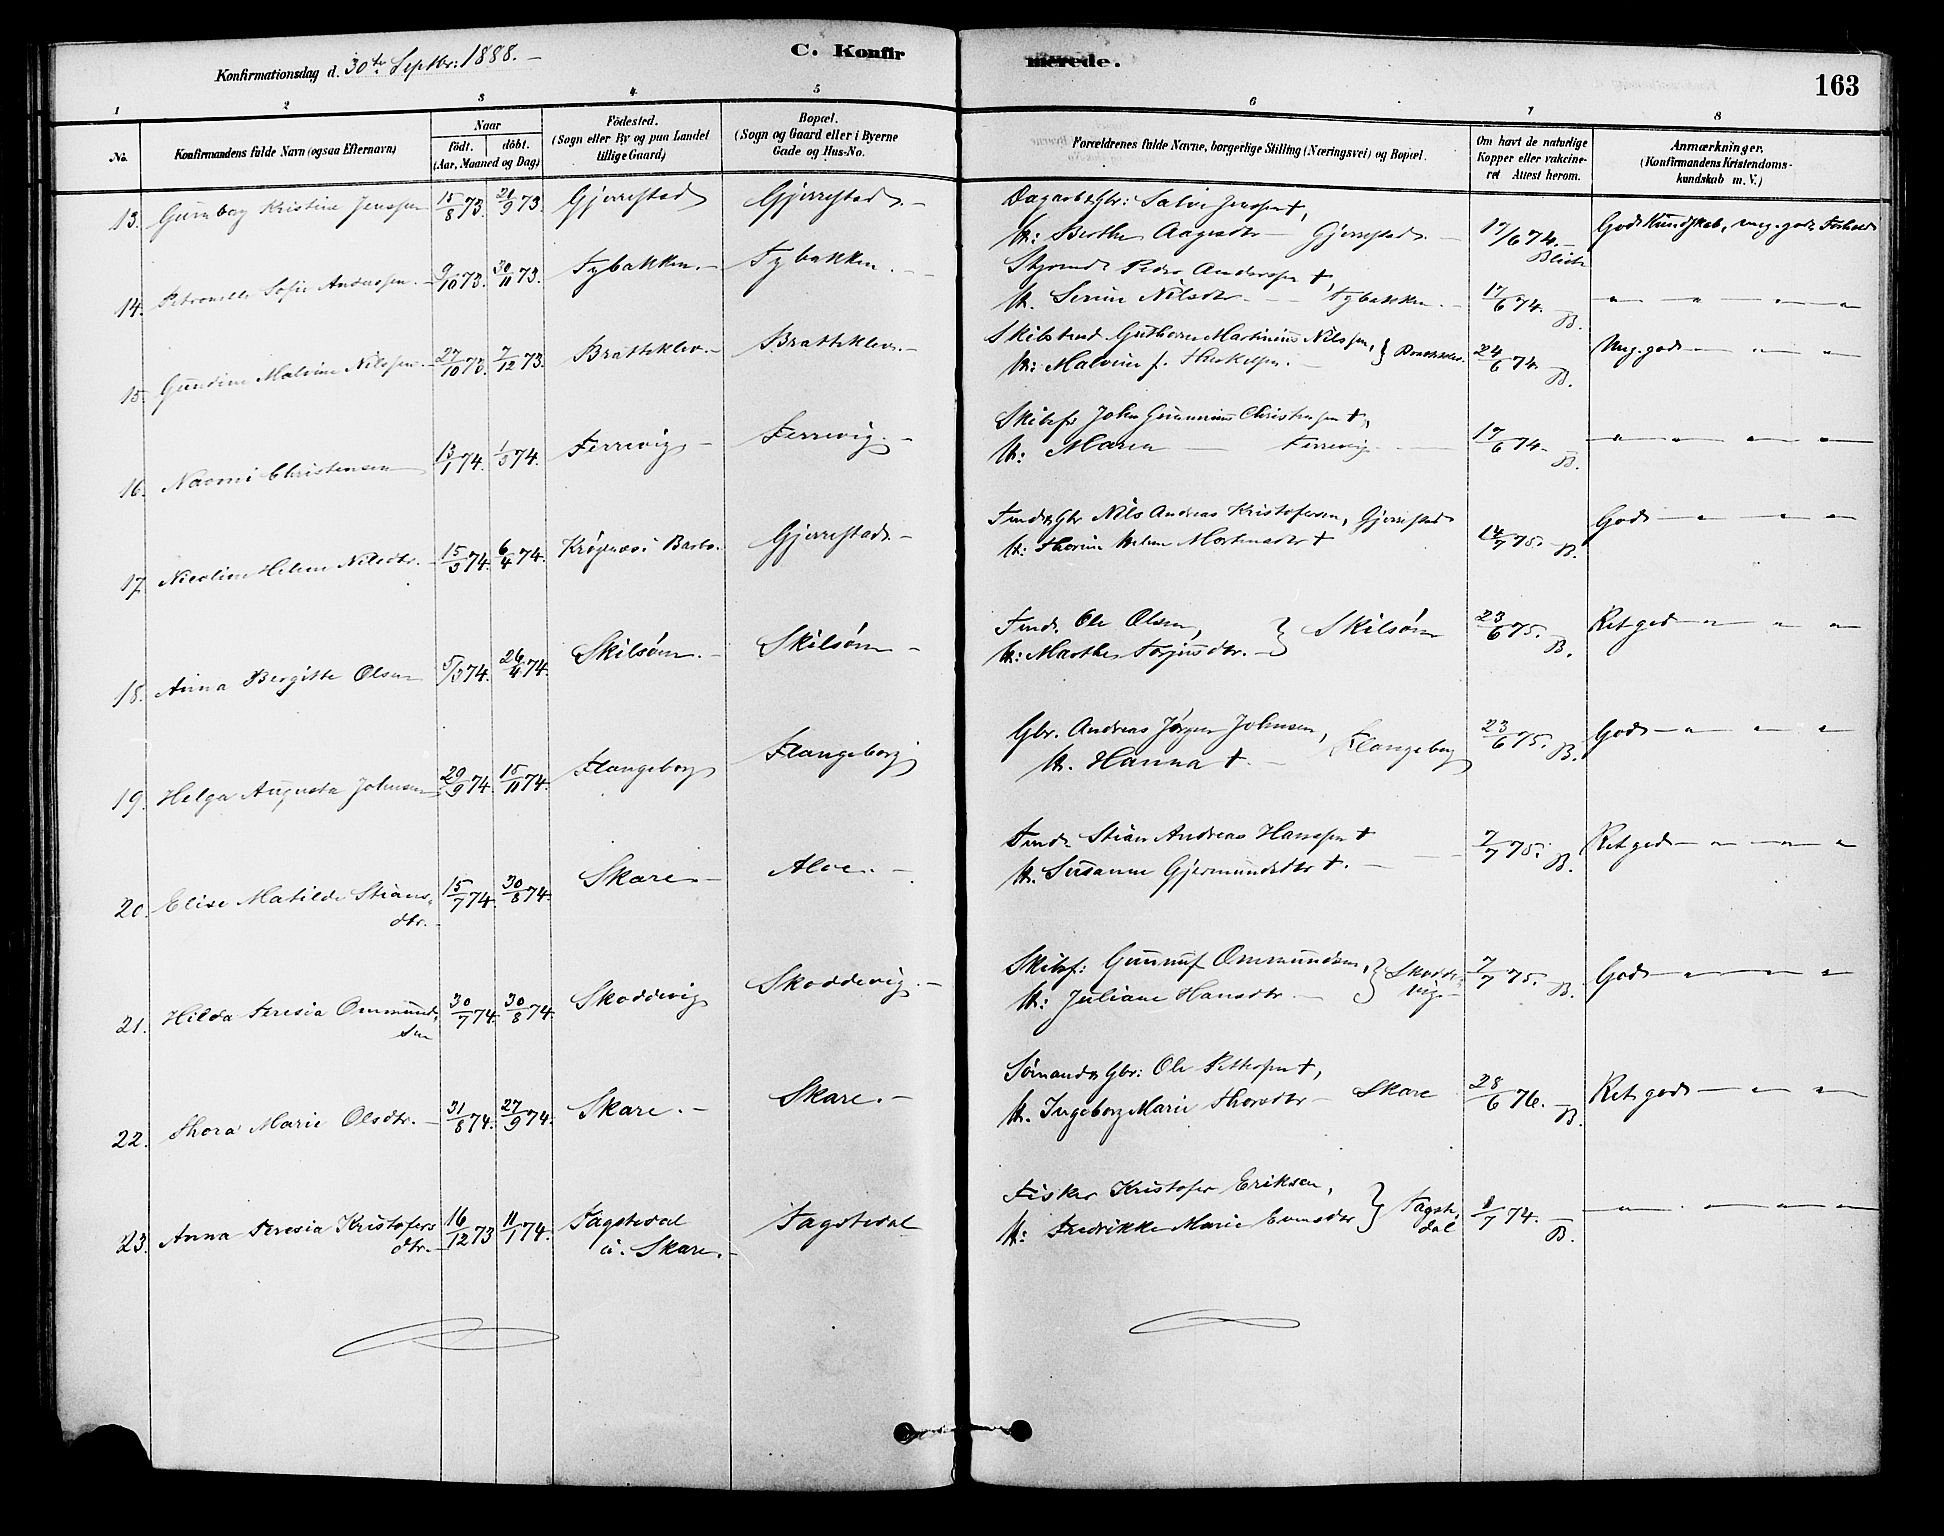 Konfirmationsdag d. 30te Septbr: 1888. –
C. Konfirmerede.
163
1 2 3 4 5 6 7 8
No.
Konfirmandens fulde Navn (ogsaa Efternavn)
Naar
födt. döbt.
(Aar, Maaned og Dag)
Födested.
(Sogn eller By og paa Landet
tillige Gaard)
Bopæl.
(Sogn og Gaard eller i Byerne
Gade og Hus-No.
Forældrenes fulde Navne, borgerlige Stilling (Næringsvei) og Bopæl.
Om havt de naturlige
Kopper eller vakcine-
ret Attest herom.
Anmærkninger.
(Konfirmandens Kristendoms-
kundskab m. V.)
13. Gunborg Kristine Jenssen 15/8 73. 21/9 73. Gjerrestad Gjerrestad. –
Dagarb & Gbr: Salve Jenssen †,
H: Berthe Aagesdtr – Gjerrestad. – 17/6 74. – God Kundskab, meg. godt Forhold
14. Petronelle Sofie Anderssen. – 9/10 73. 30/11 73. Tybakken. – Tybakken. –
Styrmd. Peder Anderssen †,
H. Serine Nilsdtr. – Tybakken. – 17/6 74. B. – " – " – " – " –
15. Gundine Malvine Nilssen. – 27/10 73. 7/12 73. Bratteklev. – Bratteklev. –
Skibstmd. Guthorm Martinius Nilssen,
H: Malvine f. Therkelsen. – } Bratteklev. 24/6 74. B. Meg. god – " – " –
16. Naomi Christensen 13/1 74. 1/3 74. Færrevig – Færrevig. –
Skibsf: John Gunerius Christensen †,
H: Maren – Færrevig – 17/6 74. B. – " – " – " –
17. Nicoline Helene Nilsdtr. – 15/3 74. 6/4 74. Krøgenes i Barbo. Gjerrestad. –
Tmd & Gbr Nils Andreas Kristofersen, Gjerrestad
H: Thorine Helene Mortensdtr † 14/7 75. B. God – " – " – "
18. Anna Bergitte Olsen 5/3 74. 26/4 74. Skilsøen. – Skilsøen –
Tmd. Ole Olsen,
H: Marthe Torjusdtr. – } Skilsøen 23/6 75. B. Ret god – " – " – "
19. Helga Augusta Johnsen 29/9 74. 15/11 74. Flangeborg Flangeborg
Gbr. Andreas Jørgen Johnsen,
H. Hanna †. – Flangeborg 23/6 75. B. God – " – " – "
20. Elise Matilde Stians-
dtr. – 15/7 74. 30/8 74. Skare – Alve. –
Tmd. Stian Andreas Hanssen †
H. Susanne Gjermundsdtr †. – 7/7 75. B. Ret god – " – " – "
21. Hilda Teresia Ommund-
sen 30/7 74. 30/8 74. Skoddevig Skoddevig. –
Skibsf: Gunnuf Ommundsen,
H: Juliane Hansdtr. – } Skodde-
vig. – 7/7 75. B. God – " – " – "
22. Thora Marie Olsdtr. – 31/8 74. 27/9 74. Skare. – Skare. –
Sømand & Gbr: Ole Pettersen †,
H. Ingeborg Marie Thorsdtr – Skare 28/6 76. B. Ret god – " – "
23. Anna Teresia Kristofers
dtr. – 16/12 73 11/1 74. Fagstedal
u. Skare. – Fagstedal
Fisker Kristofer Eriksen,
H: Fredrikke Marie Evensdtr } Fagste-
dal 1/7 74. B. – " – " – " –